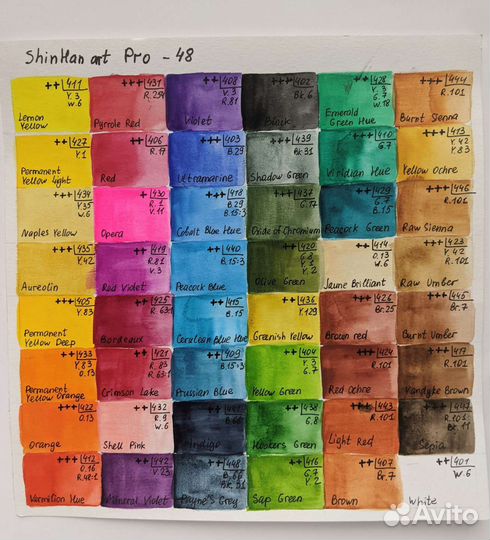 ShinHan art Pro - 48
++ 411
Y.3
W.6
Lemon
Yellow
++ 431
R.254
Pyrrole Red
++ 408
V.3
R.81
Violet
+++ 402
Bk.6
Black
++ 428
Y.3
G.7
W.18
Emerald
Green Hue
+++ 444
R.101
Burnt Sienna
++ 427
Y.1
Permanent
Yellow light
++ 406
R.17
Red
+++ 403
B.29
Ultramarine
+++ 439
Bk.31
Shadow Green
++ 410
G.7
Viridian Hue
+++ 413
Y.42
Y.83
Yellow Ochre
+++ 434
Y.35
W.6
Naples Yellow
+ 430
R.1
V.11
Opera
+++ 418
B.29
B.15:3
Cobalt Blue Hue
+++ 437
G.17
Oxide of Chromium
+++ 429
G.7
B.15
Peacock Green
+++ 446
R.101
Raw Sienna
+++ 435
Y.42
Aureolin
++ 419
R.81
V.3
Red Violet
++ 440
B.15:3
Peacock Blue
++ 420
Y.1
Y.2
Olive Green
+++ 414
O.13
W.6
Jaune Brilliant
+++ 423
Y.42
R.101
Raw Umber
+++ 405
Y.83
Permanent
Yellow Deep
++ 425
R.63:1
Bordeaux
++ 415
B.15
Cerulean Blue Hue
+++ 436
Y.129
Greenish Yellow
+++ 426
Br.25
Brown red
+++ 445
Br.7
Burnt Umber
+++ 433
Y.83
O.13
Permanent
Yellow Orange
++ 421
R.83
R.63:1
Crimson Lake
++ 409
B.15:3
Prussian Blue
++ 404
Y.3
G.7
Yellow Green
+++ 424
R.101
Red Ochre
+++ 417
R.101
Vandyke Brown
+++ 422
O.13
Orange
++ 432
R.9
W.6
Shell Pink
Indigo
++ 438
G.8
Hookers Green
+++ 443
R.101
Light Red
R.101
Br.11
Sepia
+++ 412
O.16
R.48:1
Vermilion Hue
442
V.23
Mineral Violet
+++ 448
Payne's Grey
++ 416
G.7
Y.2
Sap Green
+++ 407
Br.7
Brown
++ 401
W.6
White
Avito